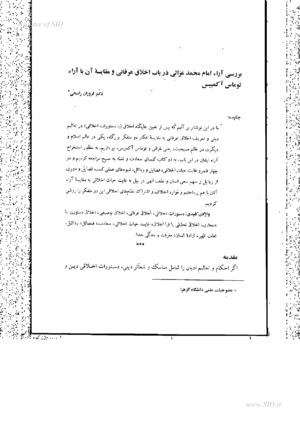 Archive of SID
بررسی آراء امام محمد غزالی در باب اخلاق عرفانی و مقایسهٔ آن با آراء
توماس آکمپیس
دکتر فروزان راسخی*
چکیده:
ما در این نوشتار بر آنیم که پس از تعیین جایگاه اخلاق (یا دستورات اخلاقی) در تعالیم
دینی و تعریف اخلاق عرفانی به مقایسهٔ افکار دو متفکر بزرگ، یکی در عالم اسلام و
دیگری در عالم مسیحیت، یعنی غزالی و توماس آکمپیس، بپردازیم. به منظور استخراج
آراء ایشان در این باب، به دو کتاب کیمیای سعادت و تشبه به مسیح مراجعه کردیم و در
چهار قلمرو غایت حیات اخلاقی، فضایل و رذائل، شیوه‌های عملی کسب فضایل و دوری
از رذایل و سهم سعی انسان و لطف الهی در نیل به غایت حیات اخلاقی به مقایسهٔ آراء
آنان با هم پرداختیم و موارد اختلاف و اشتراک نظام‌های اخلاقی این دو متفکر را روشن
کردیم.
واژگان کلیدی: دستورات اخلاقی، اخلاق عرفانی، اخلاق توصیفی، اخلاق دستوری یا
هنجاری، اخلاق تحلیلی یا فرا اخلاق، غایت حیات اخلاقی، سعادت، فضائل، رذائل،
لطف الهی، ارادهٔ انسان، معرفت و بندگی خدا.
***
مقدمه
اگر احکام و تعالیم ادیان را شامل مناسک و شعائر دینی، دستورات اخلاقی دینی و
* عضو هیئت علمی دانشگاه الزهرا
www.SID.ir